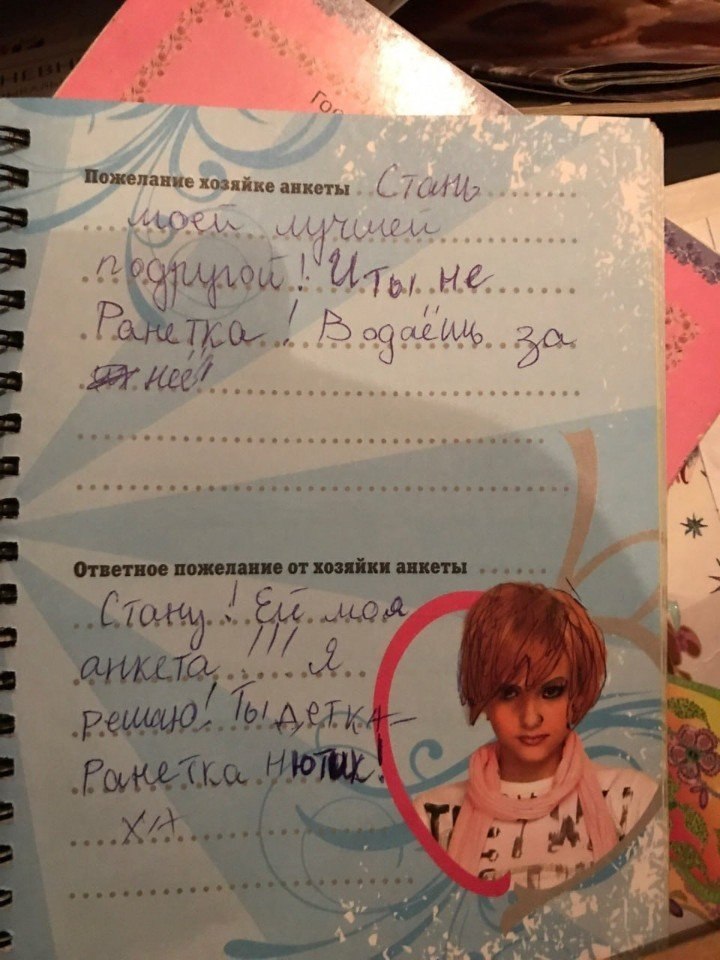 Гос
Пожелание хозяйке анкеты Стань
моей лучшей
подругой! И ты не
Ранетка! Водаёшь за
неё!!
Ответное пожелание от хозяйки анкеты
Стану! Ей моя
анкета!!! Я
решаю! Ты детка-
Ранетка Нютик!
ХА